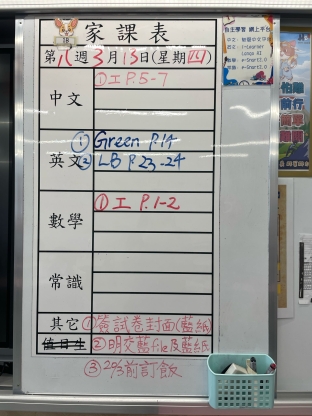 家課表
第八週3月13日(星期四)
中文
①工 P.5-7
英文
① Green P.14
② LB P.23-24
數學
①工 P.1-2
常識
其它
①簽試卷封面(藍紙)
值日生
②明交藍file及藍紙
③ 2/3前訂飯
自主學習 網上平台